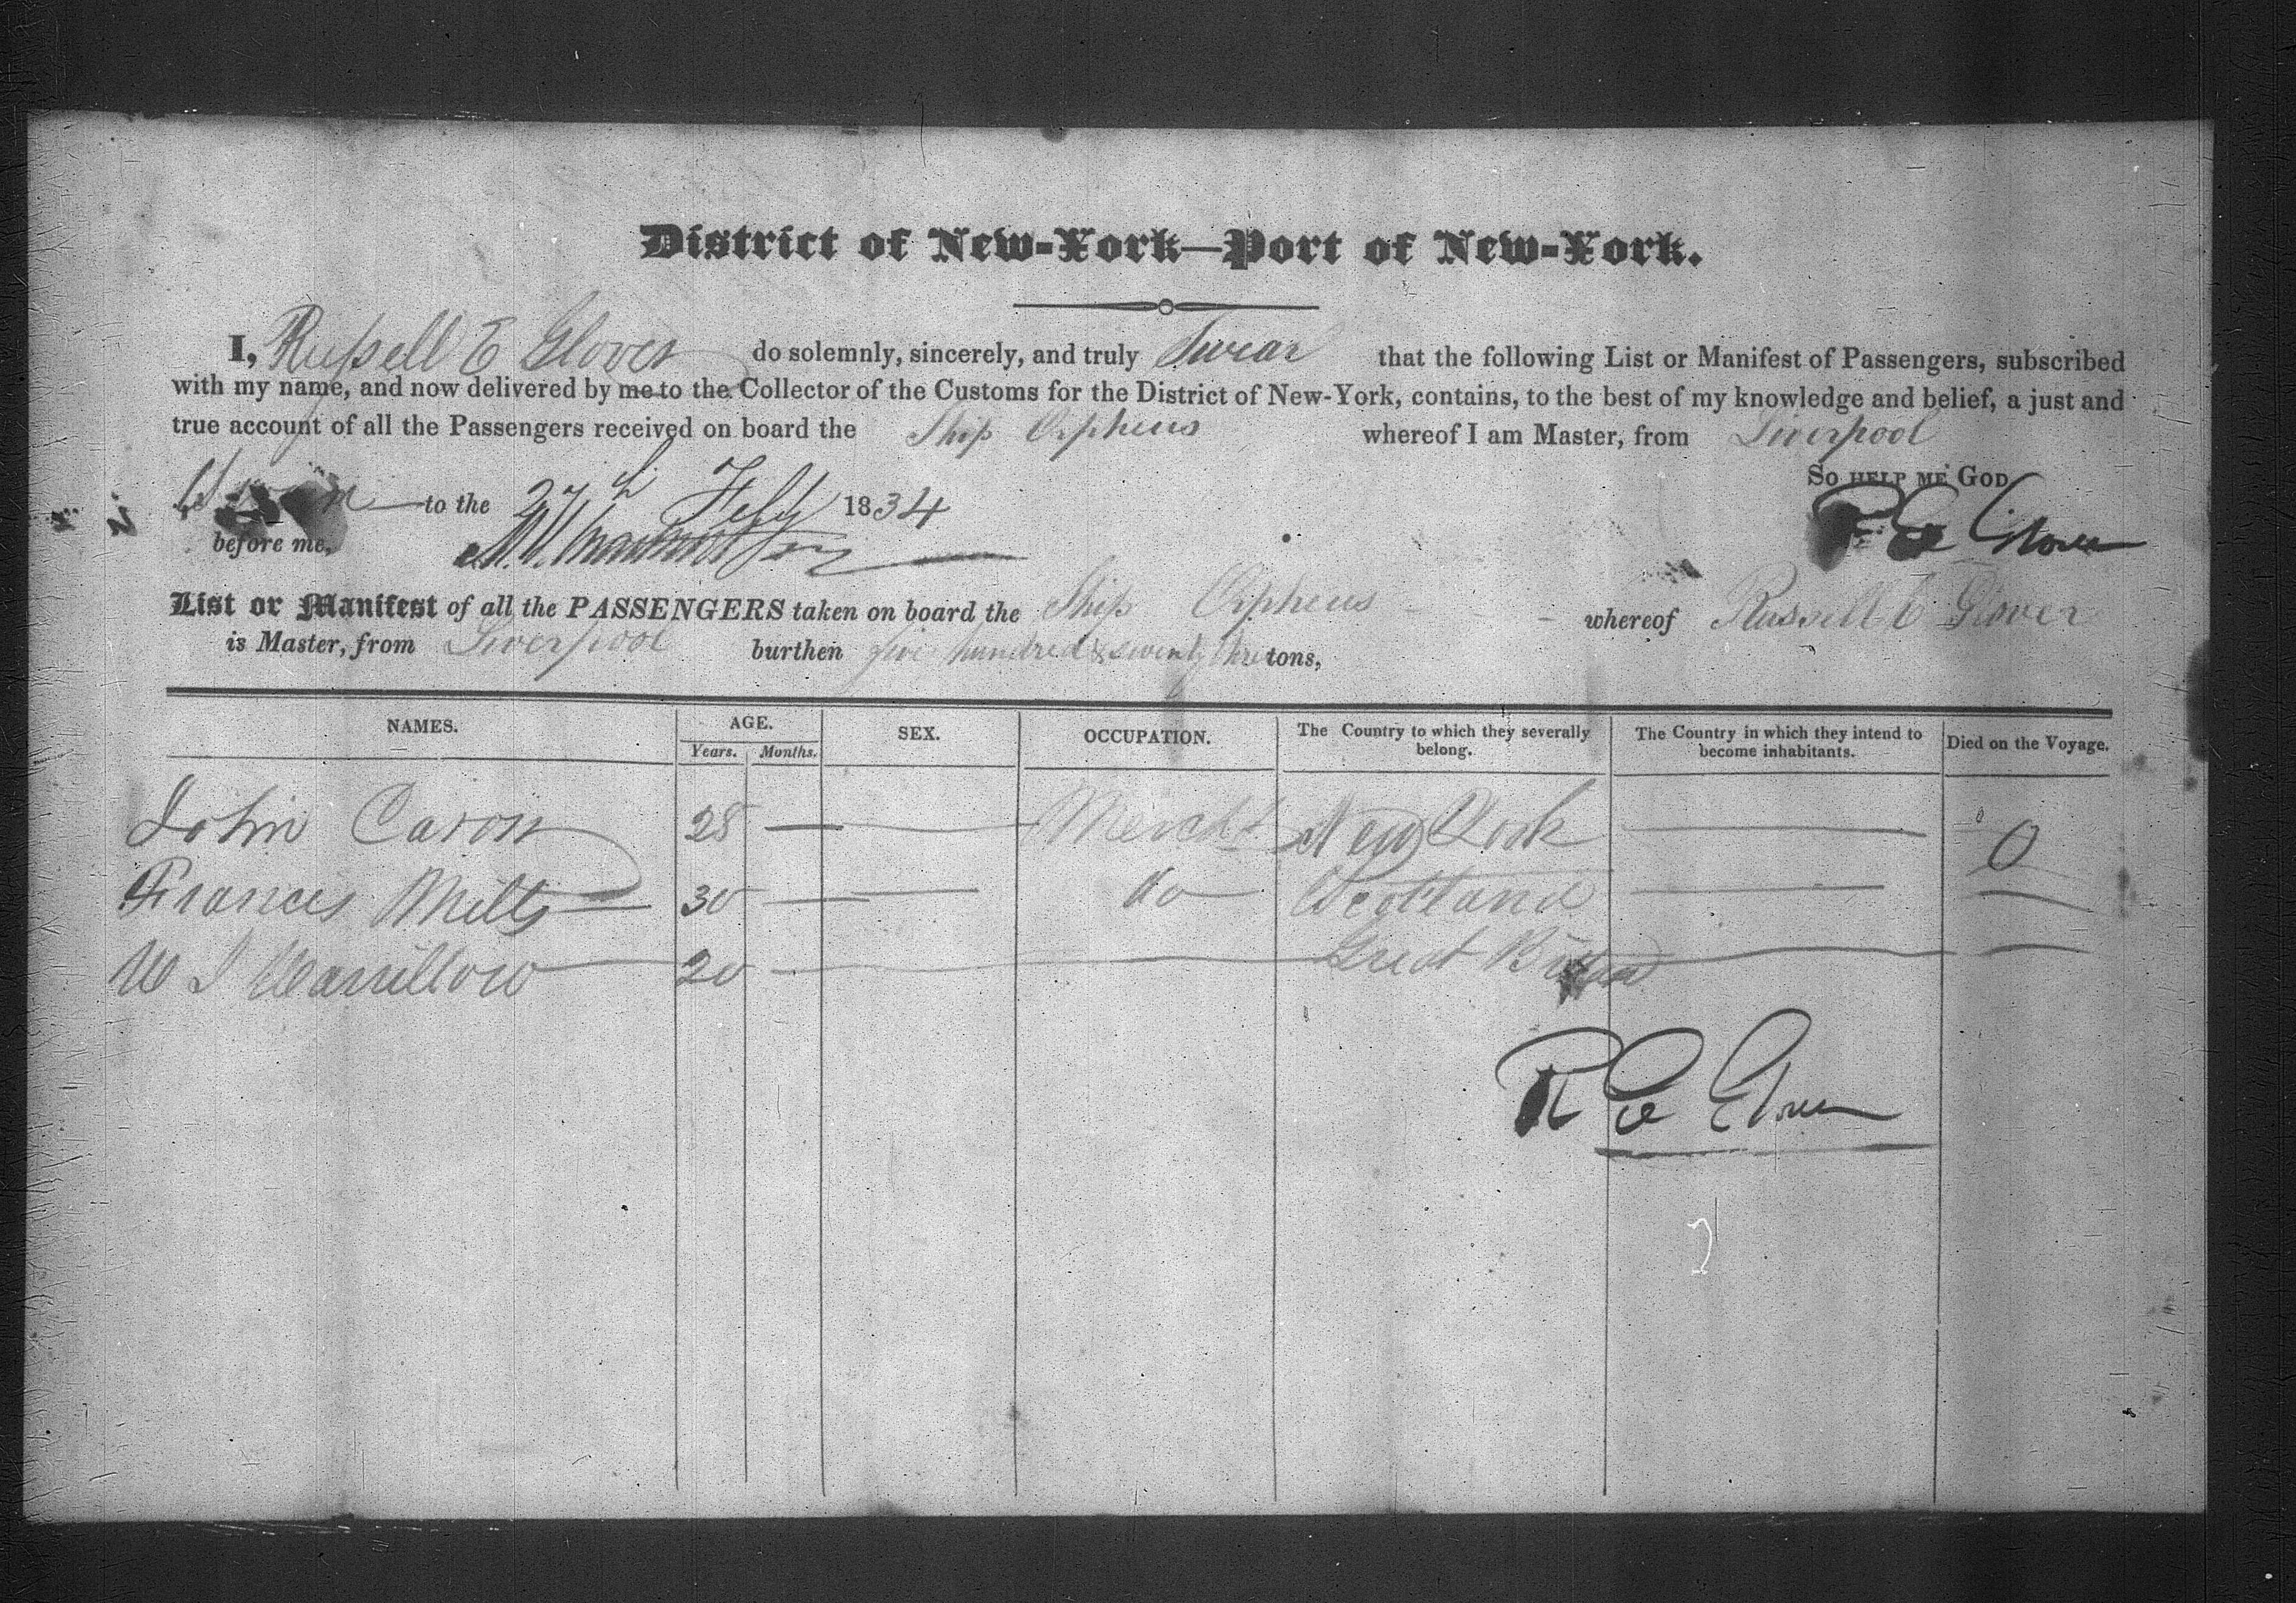 District of New-York—Port of New-York.
I, Russell E Glover do solemnly, sincerely, and truly Swear that the following List or Manifest of Passengers, subscribed
with my name, and now delivered by me to the Collector of the Customs for the District of New-York, contains, to the best of my knowledge and belief, a just and
true account of all the Passengers received on board the Ship Orpheus whereof I am Master, from Liverpool
So help me God
Sworn to the 27th Feby 1834
before me,
R E Glover
List or Manifest of all the PASSENGERS taken on board the Ship Orpheus whereof Russell E Glover
is Master, from Liverpool burthen five hundred & seventy three tons,
NAMES. AGE. SEX. OCCUPATION. The Country to which they severally belong. The Country in which they intend to become inhabitants. Died on the Voyage.
Years. Months.
John Caron 28 — — Mercht New York — 0
Frances Mills 30 — — do Scotland — —
W I 20 — — — Great Britain — —
R E Glover